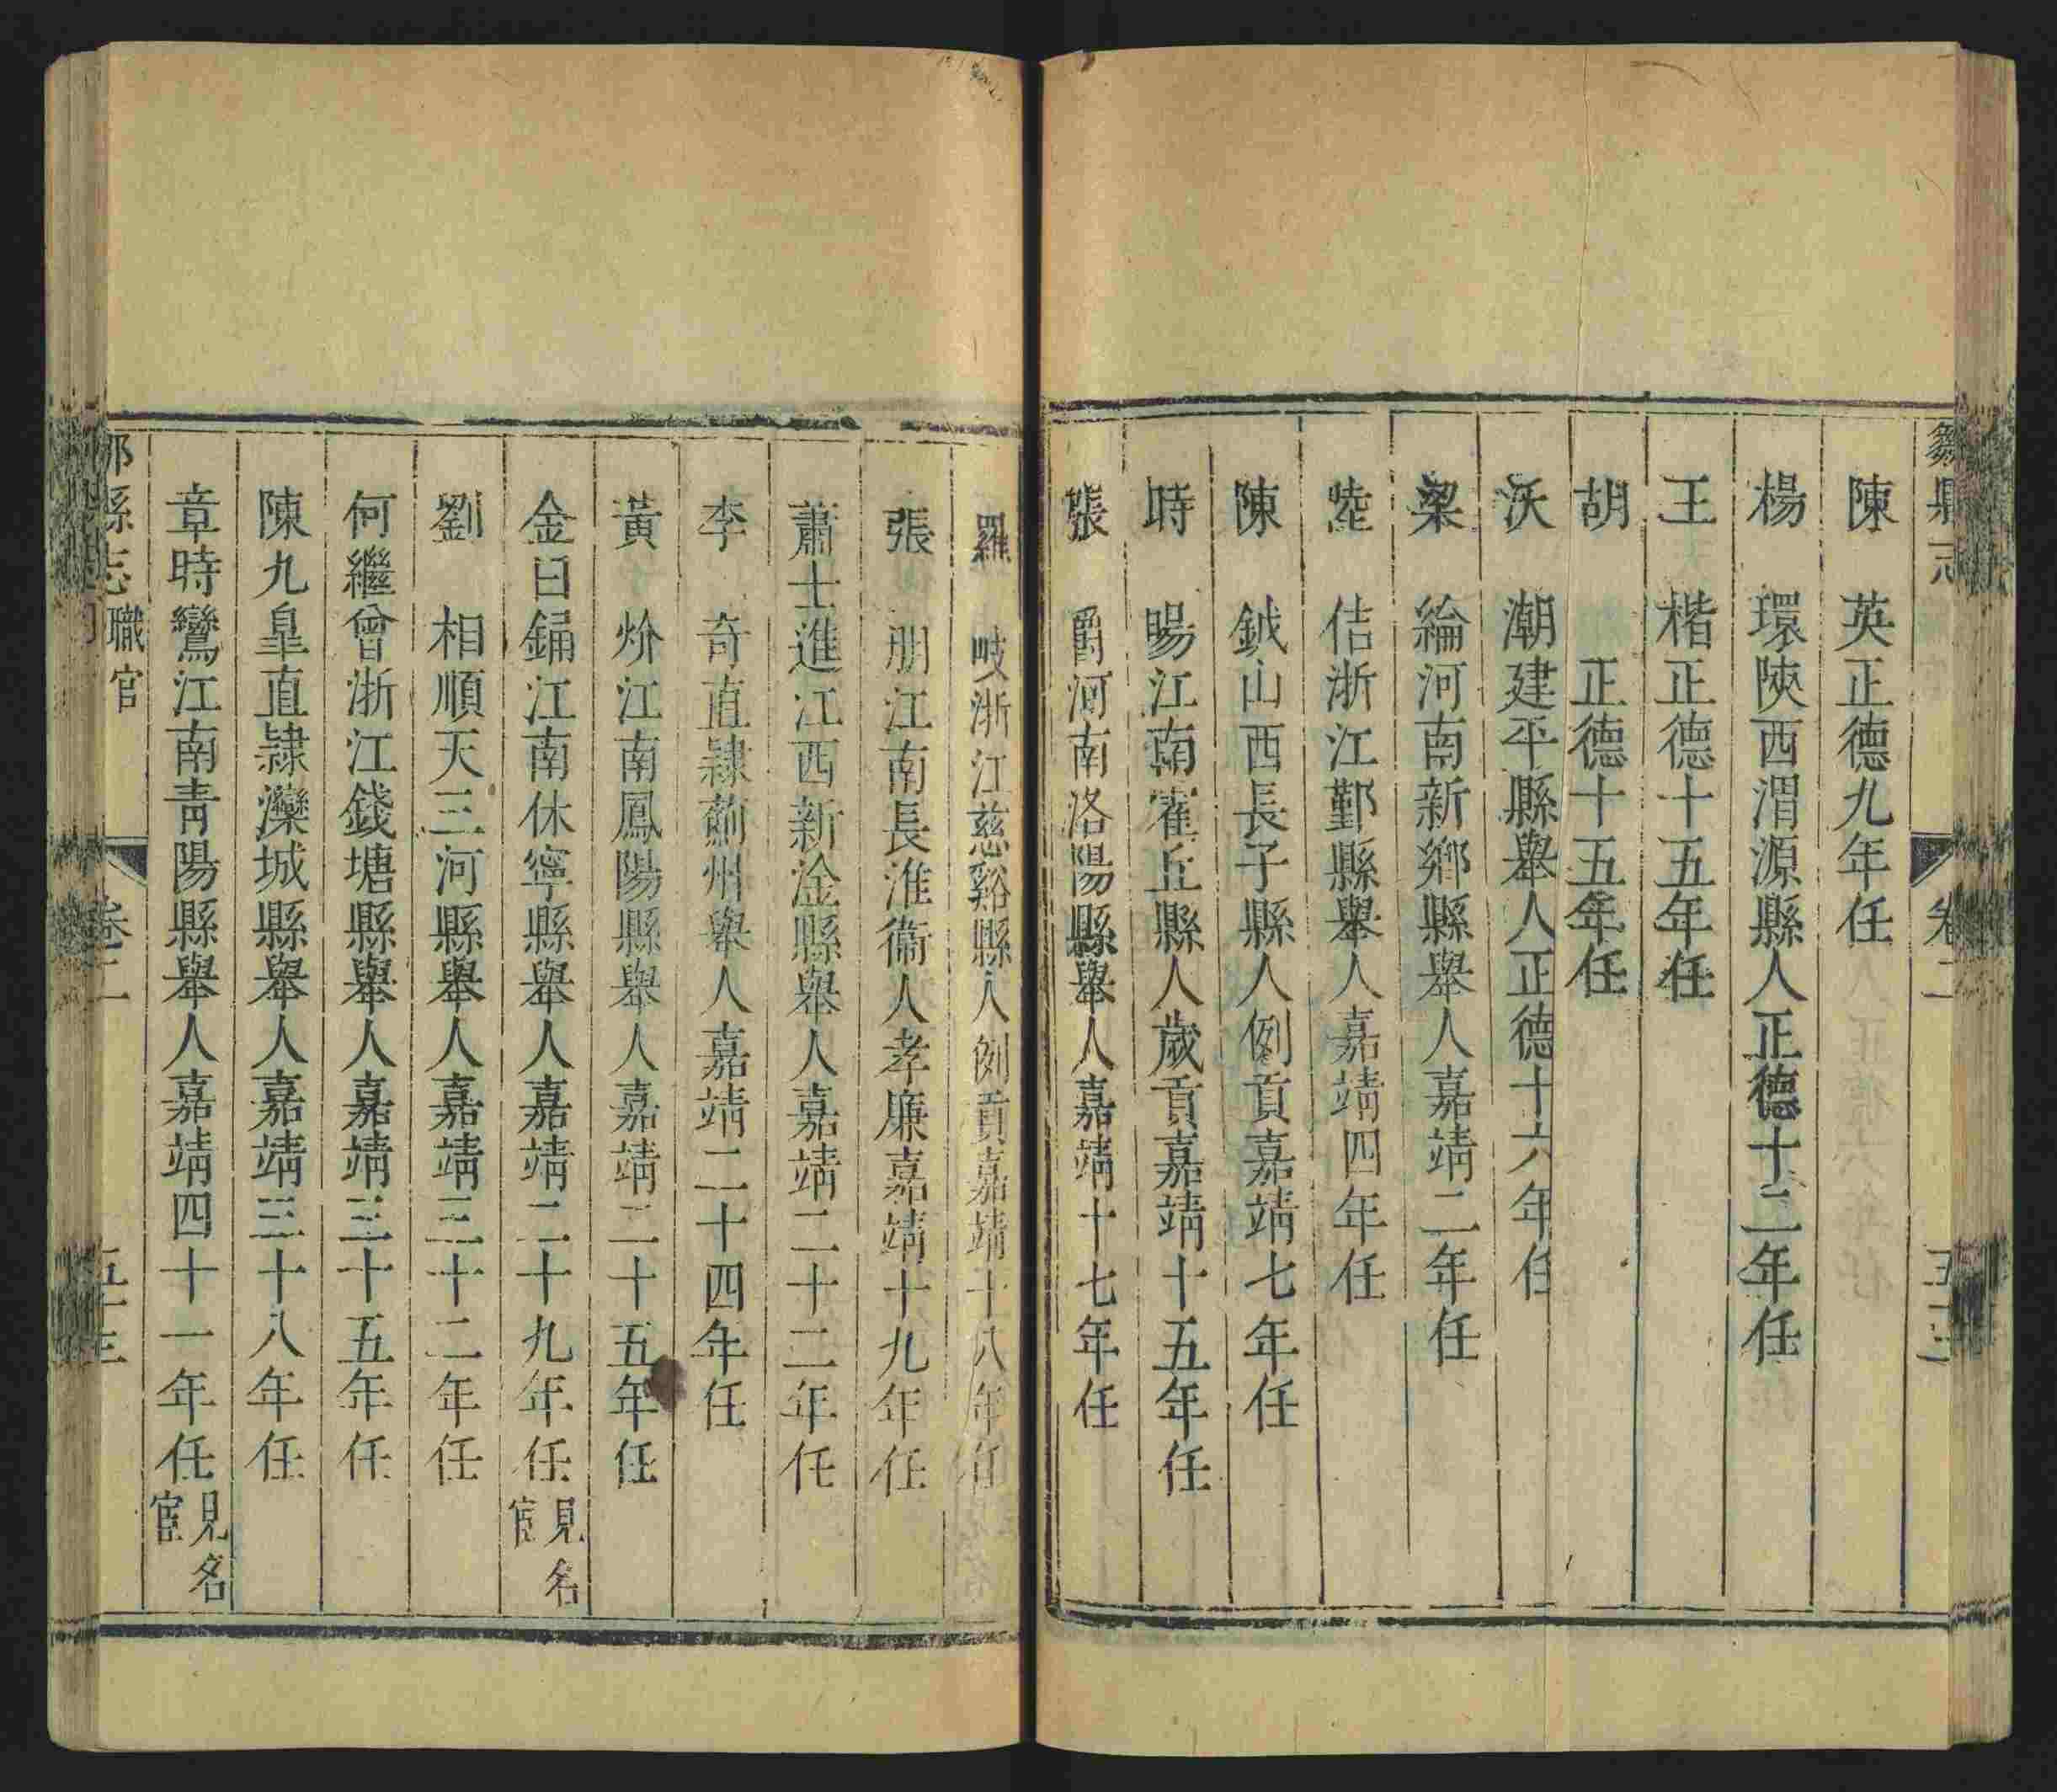 縣志
卷二
陳　英正德九年任
楊　環陝西渭源縣人正德十二年任
王　楷正德十五年任
胡　正德十五年任
沃　潮建平縣舉人正德十六年任
梁　綸河南新鄉縣舉人嘉靖二年任
陸　佶浙江鄞縣舉人嘉靖四年任
陳　鉞山西長子縣人例貢嘉靖七年任
時　暘江南霍丘縣人歲貢嘉靖十五年任
張　爵河南洛陽縣舉人嘉靖十七年任
羅　岐浙江慈谿縣人例貢嘉靖十八年任
張　朋江南長淮衞人孝廉嘉靖十九年任
蕭士進江西新淦縣舉人嘉靖二十二年任
李　奇直隸薊州舉人嘉靖二十四年任
黃　炌江南鳳陽縣舉人嘉靖二十五年任
金曰鋪江南休寧縣舉人嘉靖二十九年任見名宦
劉　相順天三河縣舉人嘉靖三十二年任
何繼曾浙江錢塘縣舉人嘉靖三十五年任
陳九皐直隸灤城縣舉人嘉靖三十八年任
章時鸞江南靑陽縣舉人嘉靖四十一年任見名宦
縣志 職官
卷二